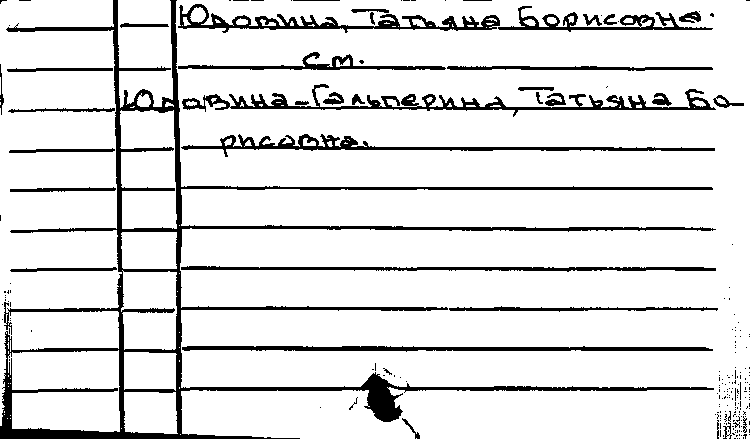 Юдовина, Татьяна Борисовна.
см.
Юдовина-Гальперина, Татьяна Бо-
рисовна.